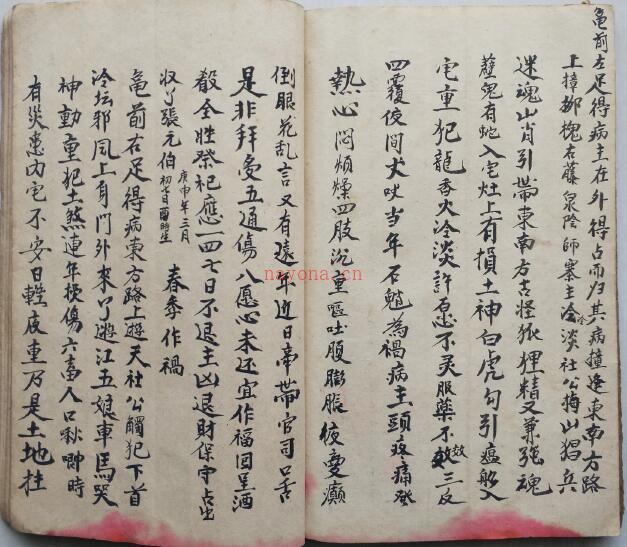 龟前左足得病主在外得占而归其病撞逢東南方路
上樟柳槐右藤泉陰師寨主冷淡社公梅山猖兵
迷魂山肖引带東南方古怪狐狸精又兼強魂
有蛇入宅灶上有損土神白虎勾引瘟船入
宅重犯龍香火冷淡許愿不灵服藥不效三反
四覆夜间犬吠当年石為禍病主頭疼痛發
熱心闷烦燥四肢沉重嘔吐腹膨脹夜变癫
倒眼花乱言又有遠年近日牵带官司口舌
是非拜受五通傷八愿心未还宜作福回呈酒
殺全牲祭祀應一四七日不退主凶退財保守占出
收丫張元伯 庚申年三月初七日酉時生 春季作禍
龟前右足得病東方路上遊天社公觸犯下首
冷坛邪风上身门外来丫遊江五娘車馬哭
神動重犯土煞連年损傷六畜人口啾唧時
有災患内宅不安日輕夜重乃是土地社
nayona.cn